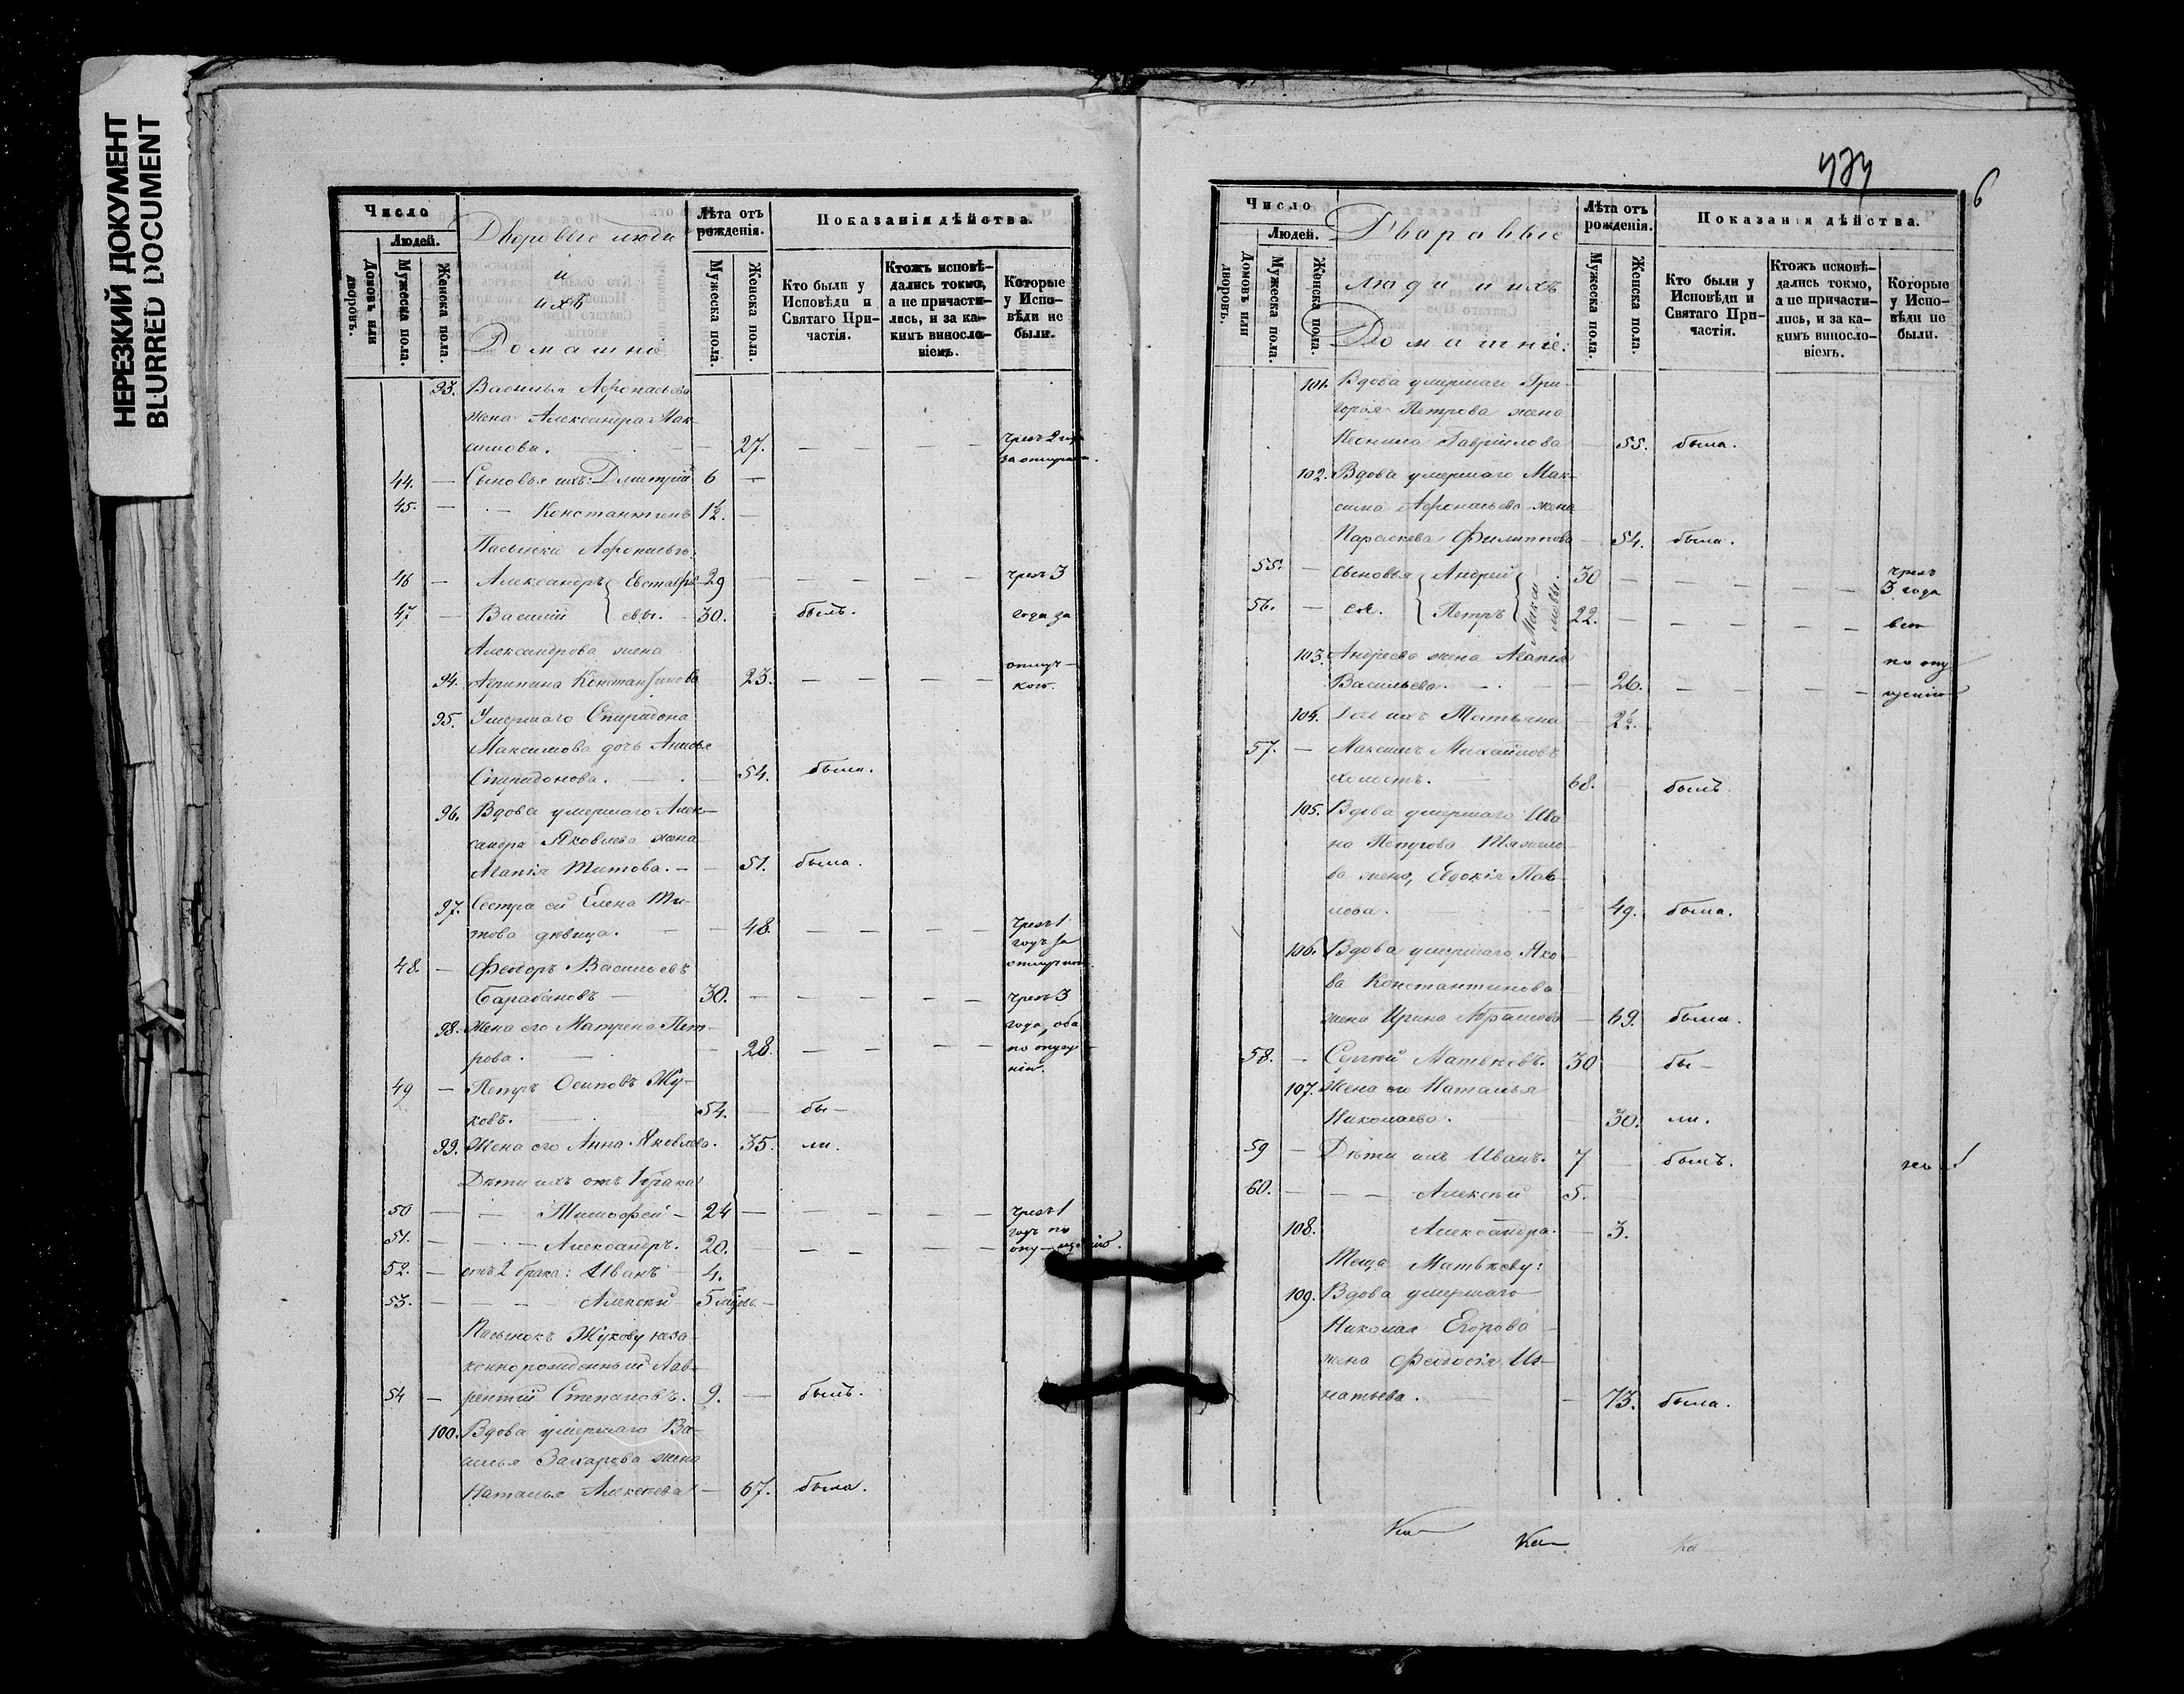 НЕРЕЗКИЙ ДОКУМЕНТ
BLURRED DOCUMENT
Число
Людей.
Домовъ или дворовъ.
Мужеска пола.
Женска пола.
Дворовые люди
и
ихъ
Домашніе
Лѣта отъ рожденія.
Мужеска пола.
Женска пола.
Показанія дѣйства.
Кто были у Исповѣди и Святаго Причастія.
Ктожъ исповѣдались токмо, а не причастились, и за какимъ винословіемъ.
Которые у Исповѣди не были.
93. Василья Афонасьева
жена Александра Мак-
симова. 27. чрезъ 2 года
за отлучкою.
44. Сыновья ихъ: Дмитрій 6
45. Константинъ 1½.
Пасынки Афонасьевы:
46 Александръ Евстафі- 29 чрезъ 3
47 Василій евы. 30. былъ. года за
Александрова жена отлуч-
94. Агрипина Константинова 23. кою.
95. Умершаго Спиридона
Максимова дочь Анисья
Спиридонова. 54. была.
96. Вдова умершаго Алек-
сандра Яковлева жена
Агапія Титова. 51. была.
97. Сестра ей Елена Ти-
това дѣвица. 48. чрезъ 1
годъ за
отлучкою.
48. Феодоръ Васильевъ
Барабановъ 30. чрезъ 3
98. Жена его Матрена Пет- года, оба
рова. 28. по опуще-
нію.
49 Петръ Осиповъ Жу-
ковъ. 54. бы-
99. Жена его Анна Яковлева. 35. ли.
Дѣти ихъ отъ 1 брака
50 Тимофей 24 чрезъ 1
годъ по
51. Александръ. 20. опущенію.
52. отъ 2 брака: Иванъ 4.
53. Алексѣй 5 мѣсяц.
Пасынокъ Жукову неза-
коннорожденный Лав-
54 рентій Степановъ. 9. былъ.
100. Вдова умершаго Ва-
силья Захарова жена
Наталья Алексѣева 67. была.
6
Число
Людей.
Домовъ или дворовъ.
Мужеска пола.
Женска пола.
Дворовые
люди и ихъ
Домашніе:
Лѣта отъ рожденія.
Мужеска пола.
Женска пола.
Показанія дѣйства.
Кто были у Исповѣди и Святаго Причастія.
Ктожъ исповѣдались токмо, а не причастились, и за какимъ винословіемъ.
Которые у Исповѣди не были.
101. Вдова умершаго Гри-
горія Петрова жена
Гавріилова 55. была.
102. Вдова умершаго Мак-
сима Афонасьева жена
Параскева Филиппова 54. была.
55. сыновья Андрей Макси- 30 чрезъ
3 года
56. ея. Петръ мовы. 22. всѣ
103. Андреева жена Агапія по опу-
Васильева. 26. щенію
104. Дочь ихъ Татьяна 2½.
57. Максимъ Михайловъ
холостъ. 68. былъ.
105. Вдова умершаго Ива
на Петрова Тяжело-
ва жена, Евдокія Пав-
лова. 49. была.
106. Вдова умершаго Яко-
ва Константинова
жена Ирина Абрамова 69. была.
58. Сергій Матвѣевъ. 30 бы-
107. Жена его Наталья
Николаева. 30. ли.
59 Дѣти ихъ Иванъ. 7 былъ.
60. Алексѣй 5.
108. Александра. 3.
Теща Матвѣеву:
109. Вдова умершаго
Николая Егорова
жена Феодосія Иг-
натьева. 73. была.